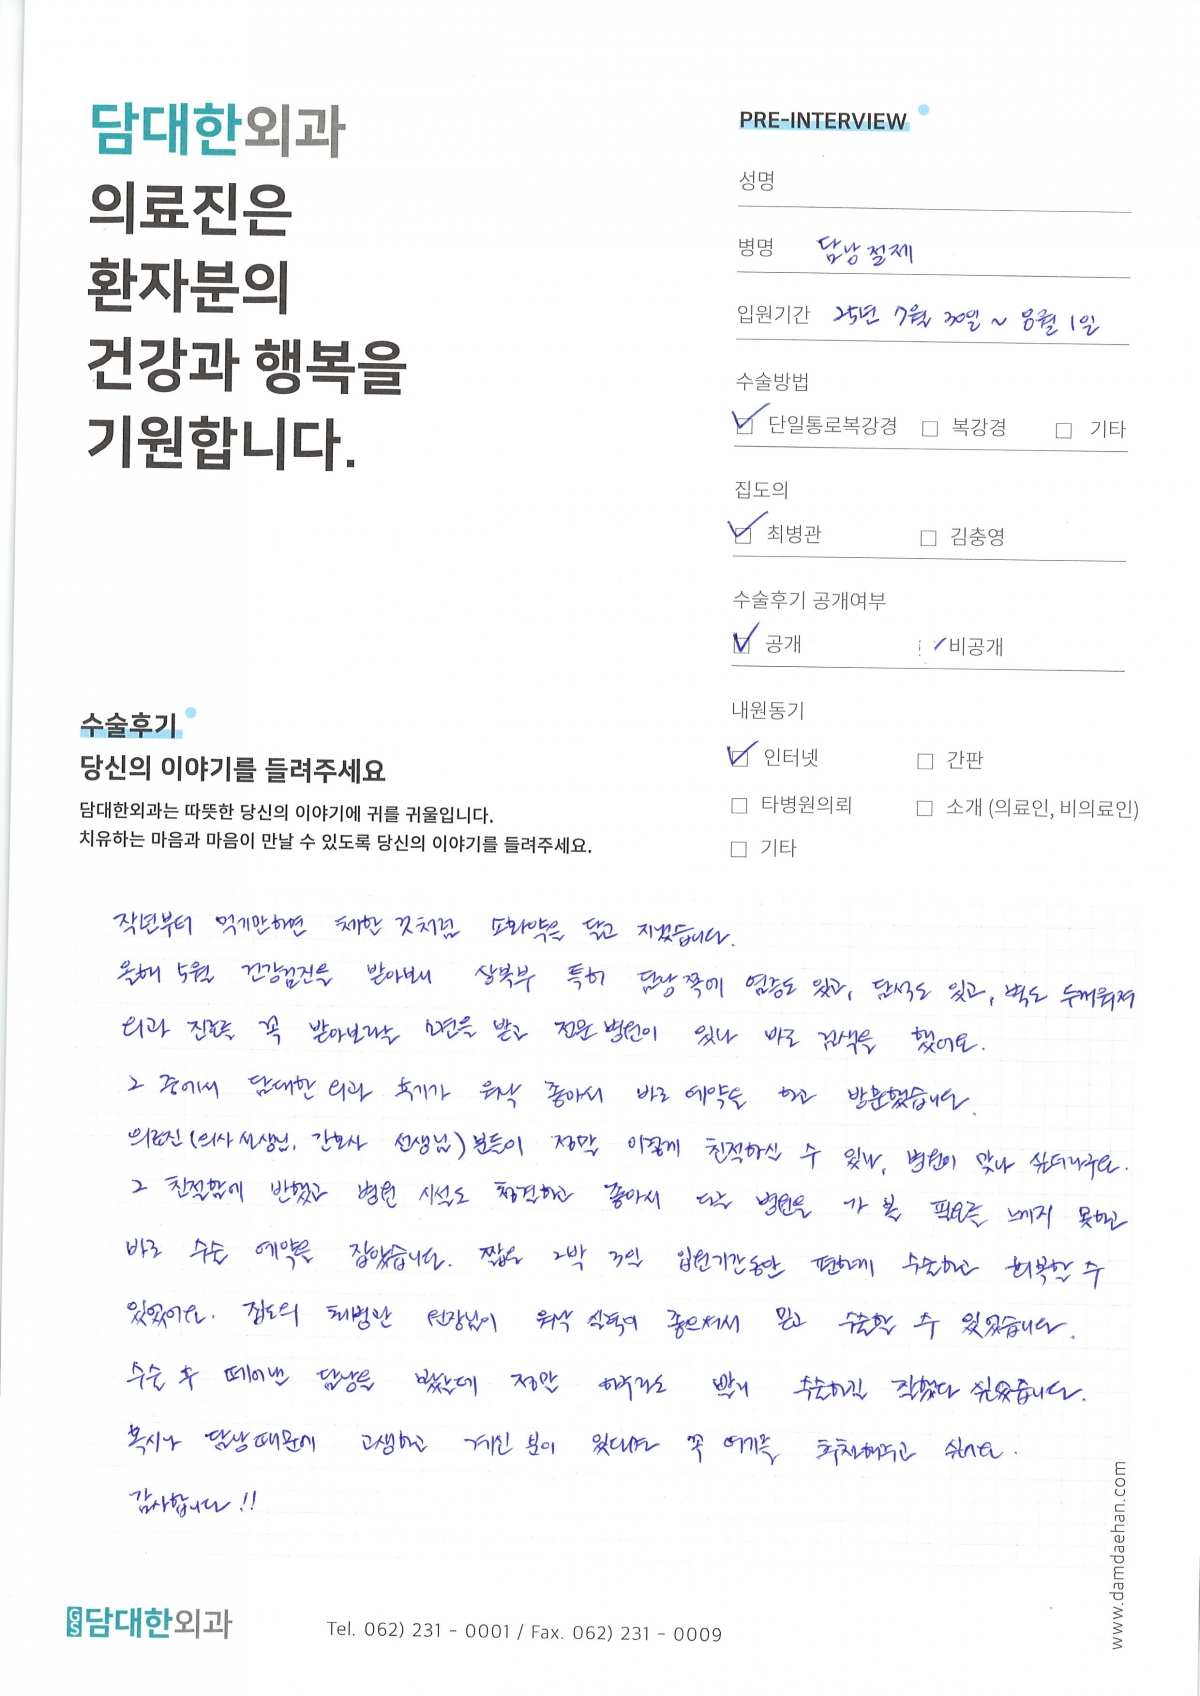 담대한외과
의료진은
환자분의
건강과 행복을
기원합니다.
PRE-INTERVIEW
성명
병명 담낭절제
입원기간 25년 7월 30일 ~ 8월 1일
수술방법
단일통로복강경 복강경 기타
집도의
최병관 김충영
수술후기 공개여부
공개 비공개
내원동기
인터넷 간판
타병원의뢰 소개 (의료인, 비의료인)
기타
수술후기
당신의 이야기를 들려주세요
담대한외과는 따뜻한 당신의 이야기에 귀를 귀울입니다.
치유하는 마음과 마음이 만날 수 있도록 당신의 이야기를 들려주세요.
작년부터 먹기만하면 체한 것처럼 소화약을 달고 지냈습니다.
올해 5월 건강검진을 받아보니 상복부 특히 담낭쪽에 염증도 있고, 담석도 있고, 벽도 두꺼워져
외과 진료를 꼭 받아보라는 소견을 받고 전문병원이 있나 바로 검색을 했어요.
그 중에서 담대한외과 후기가 워낙 좋아서 바로 예약을 하고 방문했습니다.
의료진(의사선생님, 간호사 선생님)분들이 정말 이렇게 친절하실 수 있나, 병원이 맞나 싶더라구요.
그 친절함에 반했고 병원 시설도 청결하고 좋아서 다른 병원을 가 볼 필요를 느끼지 못하고
바로 수술 예약을 잡았습니다. 짧은 2박 3일 입원기간동안 편하게 수술하고 회복할 수
있었어요. 집도의 최병관 원장님이 워낙 실력이 좋으셔서 믿고 수술할 수 있었습니다.
수술 후 떼어낸 담낭을 봤는데 정말 하루라도 빨리 수술하길 잘했다 싶었습니다.
혹시나 담낭때문에 고생하고 계신 분이 있다면 꼭 여기를 추천해주고 싶어요.
감사합니다!!
GS담대한외과
Tel. 062) 231 - 0001 / Fax. 062) 231 - 0009
www.damdaehan.com